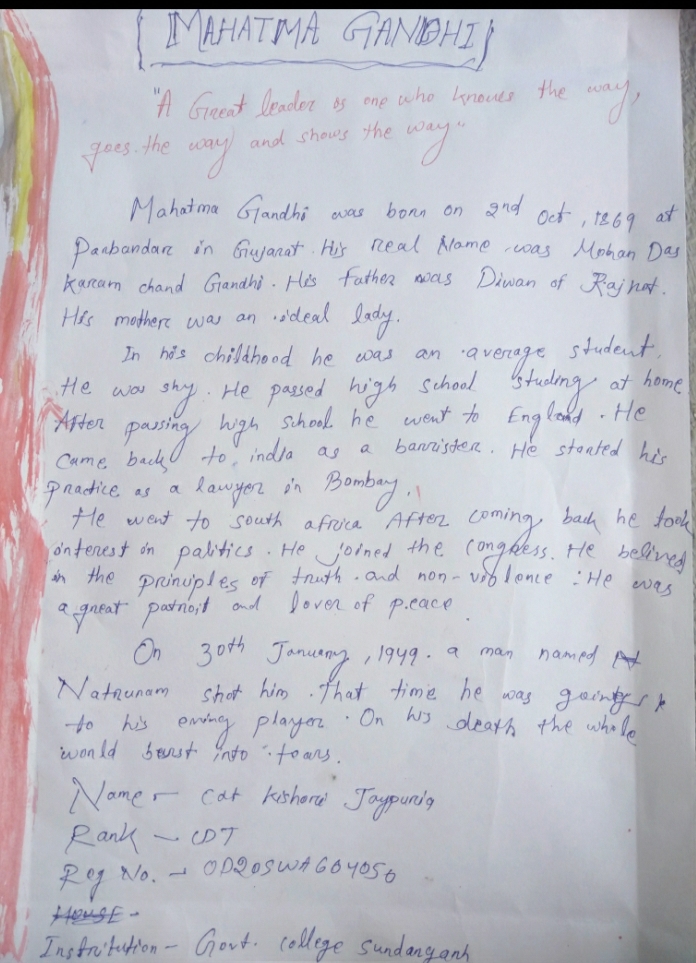 MAHATMA GANDHI
"A Great leader is one who knows the way,
goes the way and shows the way"
Mahatma Gandhi was born on 2nd Oct, 1869 at
Parbandar in Gujarat. His real Name was Mohan Das
Karam chand Gandhi. His father was Diwan of Rajkot.
His mother was an ideal lady.
In his childhood he was an average student.
He was shy. He passed high school studing at home
After passing high school he went to England. He
Came back to india as a barrister. He started his
practice as a lawyer in Bombay.
He went to south africa After coming back he took
interest in palitics. He joined the Congress. He belived
in the principles of truth and non-violence. He was
a great patroit and lover of peace.
On 30th January, 1949. a man named
Naturunam shot him. That time he was going
to his evning player. On his death the whole
world burst into tears.
Name - Cdt Kishori Jaypuria
Rank - CDT
Reg No. - OD20SWA604056
House -
Instritution - Govt. college Sundargarh